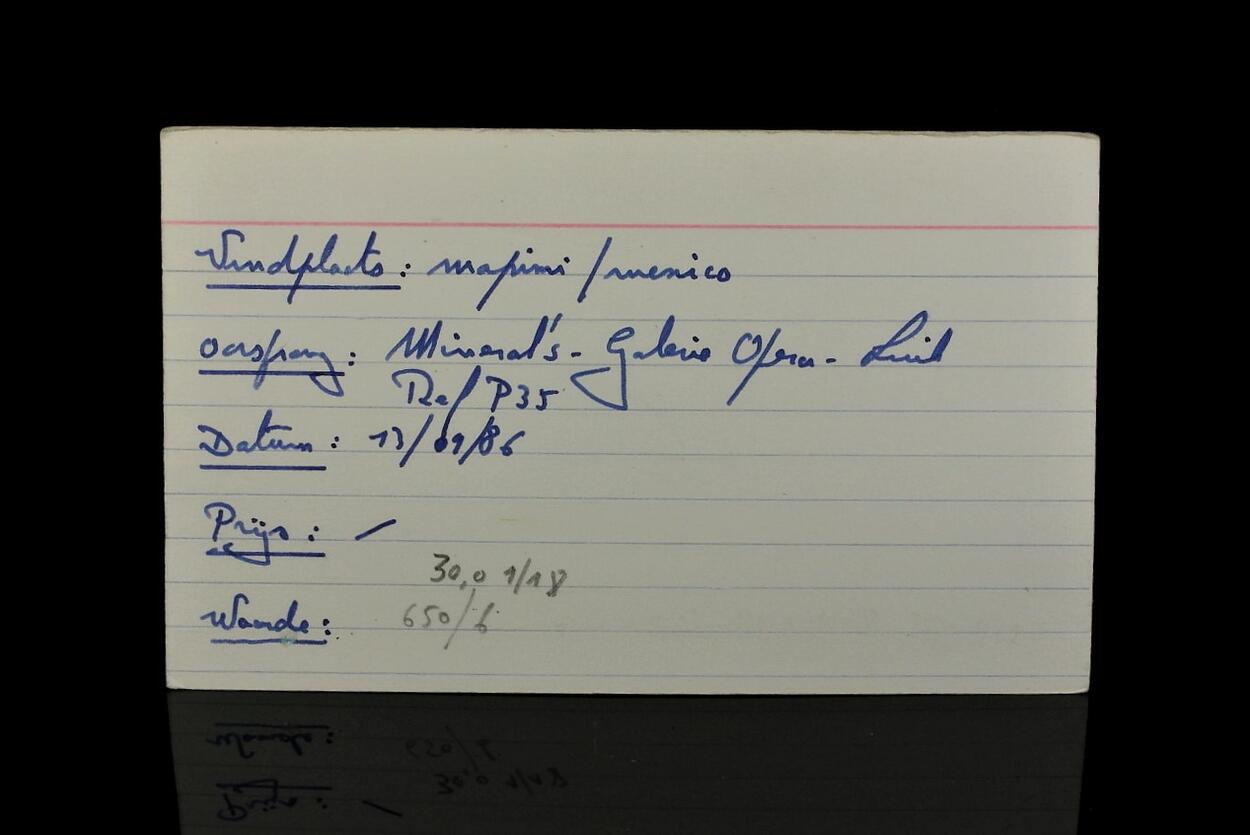 Vindplaats: mapimi / mexico
oorsprong: Mineral's - Galerie Opera - Luik
Ref P35
Datum: 13/09/86
Prijs: /
30,0 1/18
Waarde: 650/6